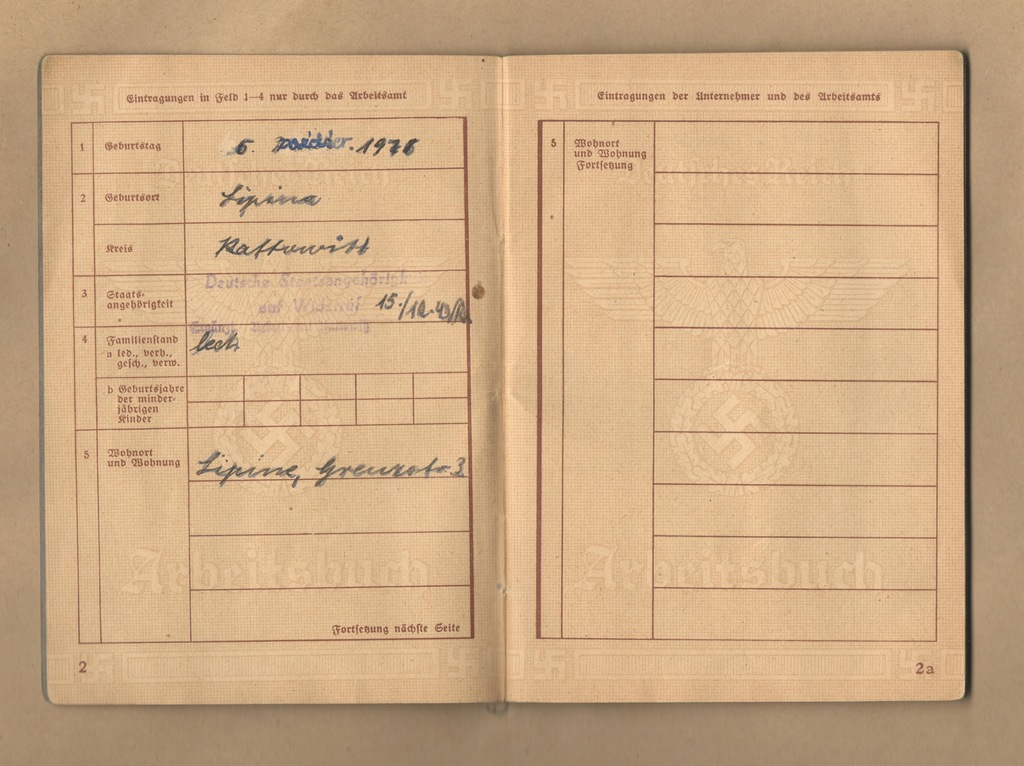 Eintragungen in Feld 1—4 nur durch das Arbeitsamt
1 Geburtstag 6. 19
2 Geburtsort Lipina
Kreis Kattowitz
3 Staats-
angehörigkeit
Deutsche Staatsangehörigk
auf Widerruf 15./12.43
4 Familienstand
a led., verh.,
gesch., verw.
led.
b Geburtsjahre
der minder-
jährigen
Kinder
5 Wohnort
und Wohnung
Lipine, Grenzstr. 3
Arbeitsbuch
Fortsetzung nächste Seite
2
Eintragungen der Unternehmer und des Arbeitsamts
5 Wohnort
und Wohnung
Fortsetzung
Arbeitsbuch
2a